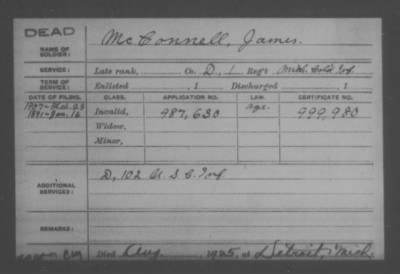 DEAD
NAME OF SOLDIER: McConnell, James.
SERVICE: Late rank, Co. D, 1 Reg't Mich. Cold Inf.
TERM OF SERVICE: Enlisted , 1 Discharged , 1
DATE OF FILING. CLASS. APPLICATION NO. LAW. CERTIFICATE NO.
1891-Jan, 16 Invalid, 987,630 Age. 999,980
Widow,
Minor,
ADDITIONAL SERVICES: D, 102 U S C. Inf
REMARKS:
Died Aug. 1925, at Detroit, Mich.